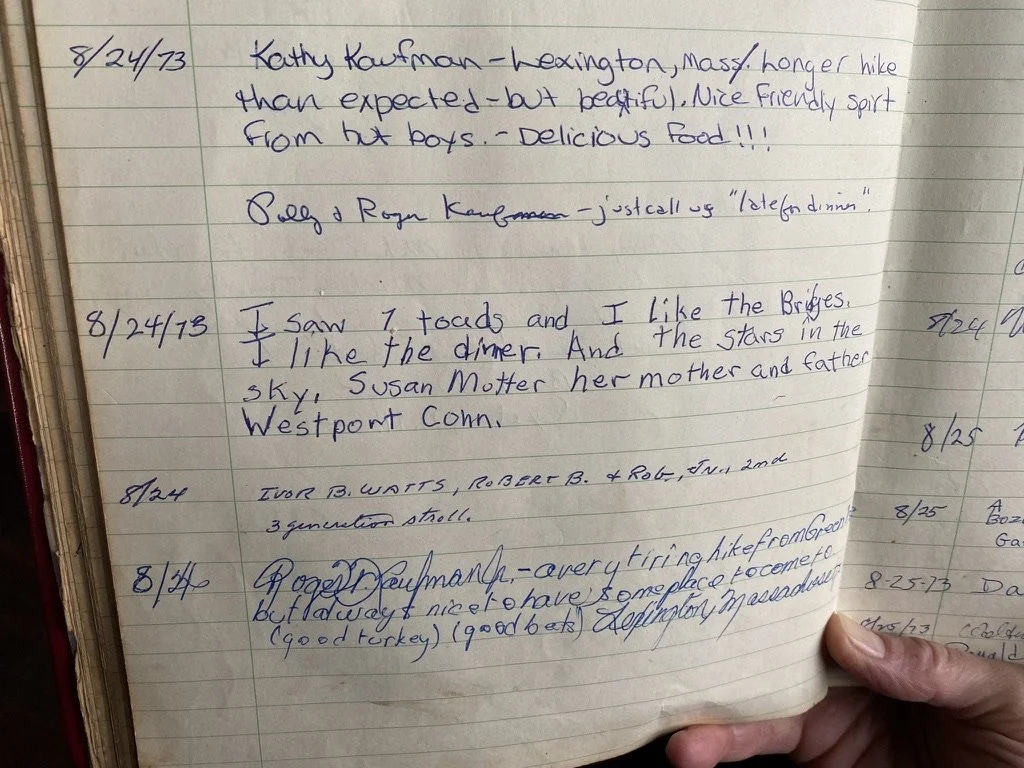 8/24/73 Kathy Kaufman - Lexington, Mass. Longer hike
than expected - but beautiful. Nice Friendly spirt
From hut boys. - Delicious Food!!!
Polly & Roger Kaufman - just call us "late for dinner".
8/24/73 I saw 7 toads and I like the Bridges.
I like the dinner. And the stars in the
sky, Susan Motter her mother and father
Westport Conn.
8/24 IVOR B. WATTS, ROBERT B. & Rob, JN., 2nd
3 generation stroll.
8/24 Roger D Kaufman Jr. - a very tiring hike from
but always nice to have some place to come to
(good turkey) (good beds) Lexington, Massachusetts
8/24
8/25
8/25 A
Boz
Ga
8-25-73 Da
8/25/73